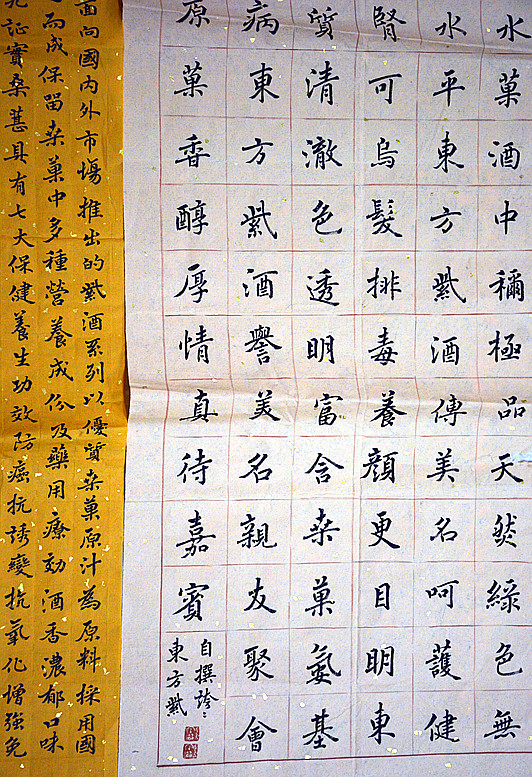 水菓酒中稱極品天然綠色無
水平東方紫酒傳美名呵護健
腎可烏髮排毒養顏更目明東
質清澈色透明富含桑菓氨基
病東方紫酒譽美名親友聚會
原菓香醇厚情真待嘉賓
自撰誇〻
東方紫
面向國內外市塲推出的紫酒系列以優質桑菓原汁為原料採用國
而成保留桑菓中多種營養成份及藥用療効酒香濃郁口味
証實桑葚具有七大保健養生功效防癌抗誘變抗氧化增強免